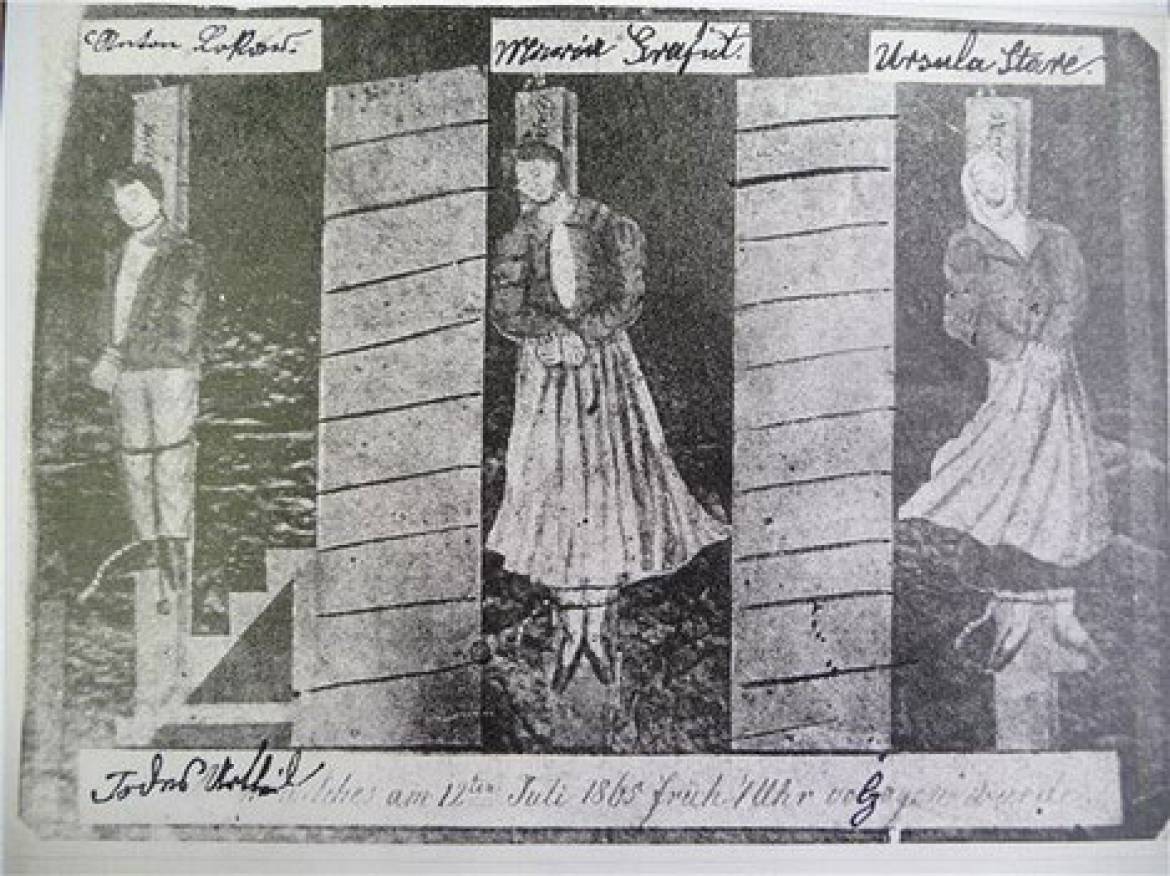 Anton Lokau.
Maria Grafut.
Ursula Stare.
Todes Urtheil welches am 12ten Juli 1865 früh 7 Uhr vollzogen wurde.